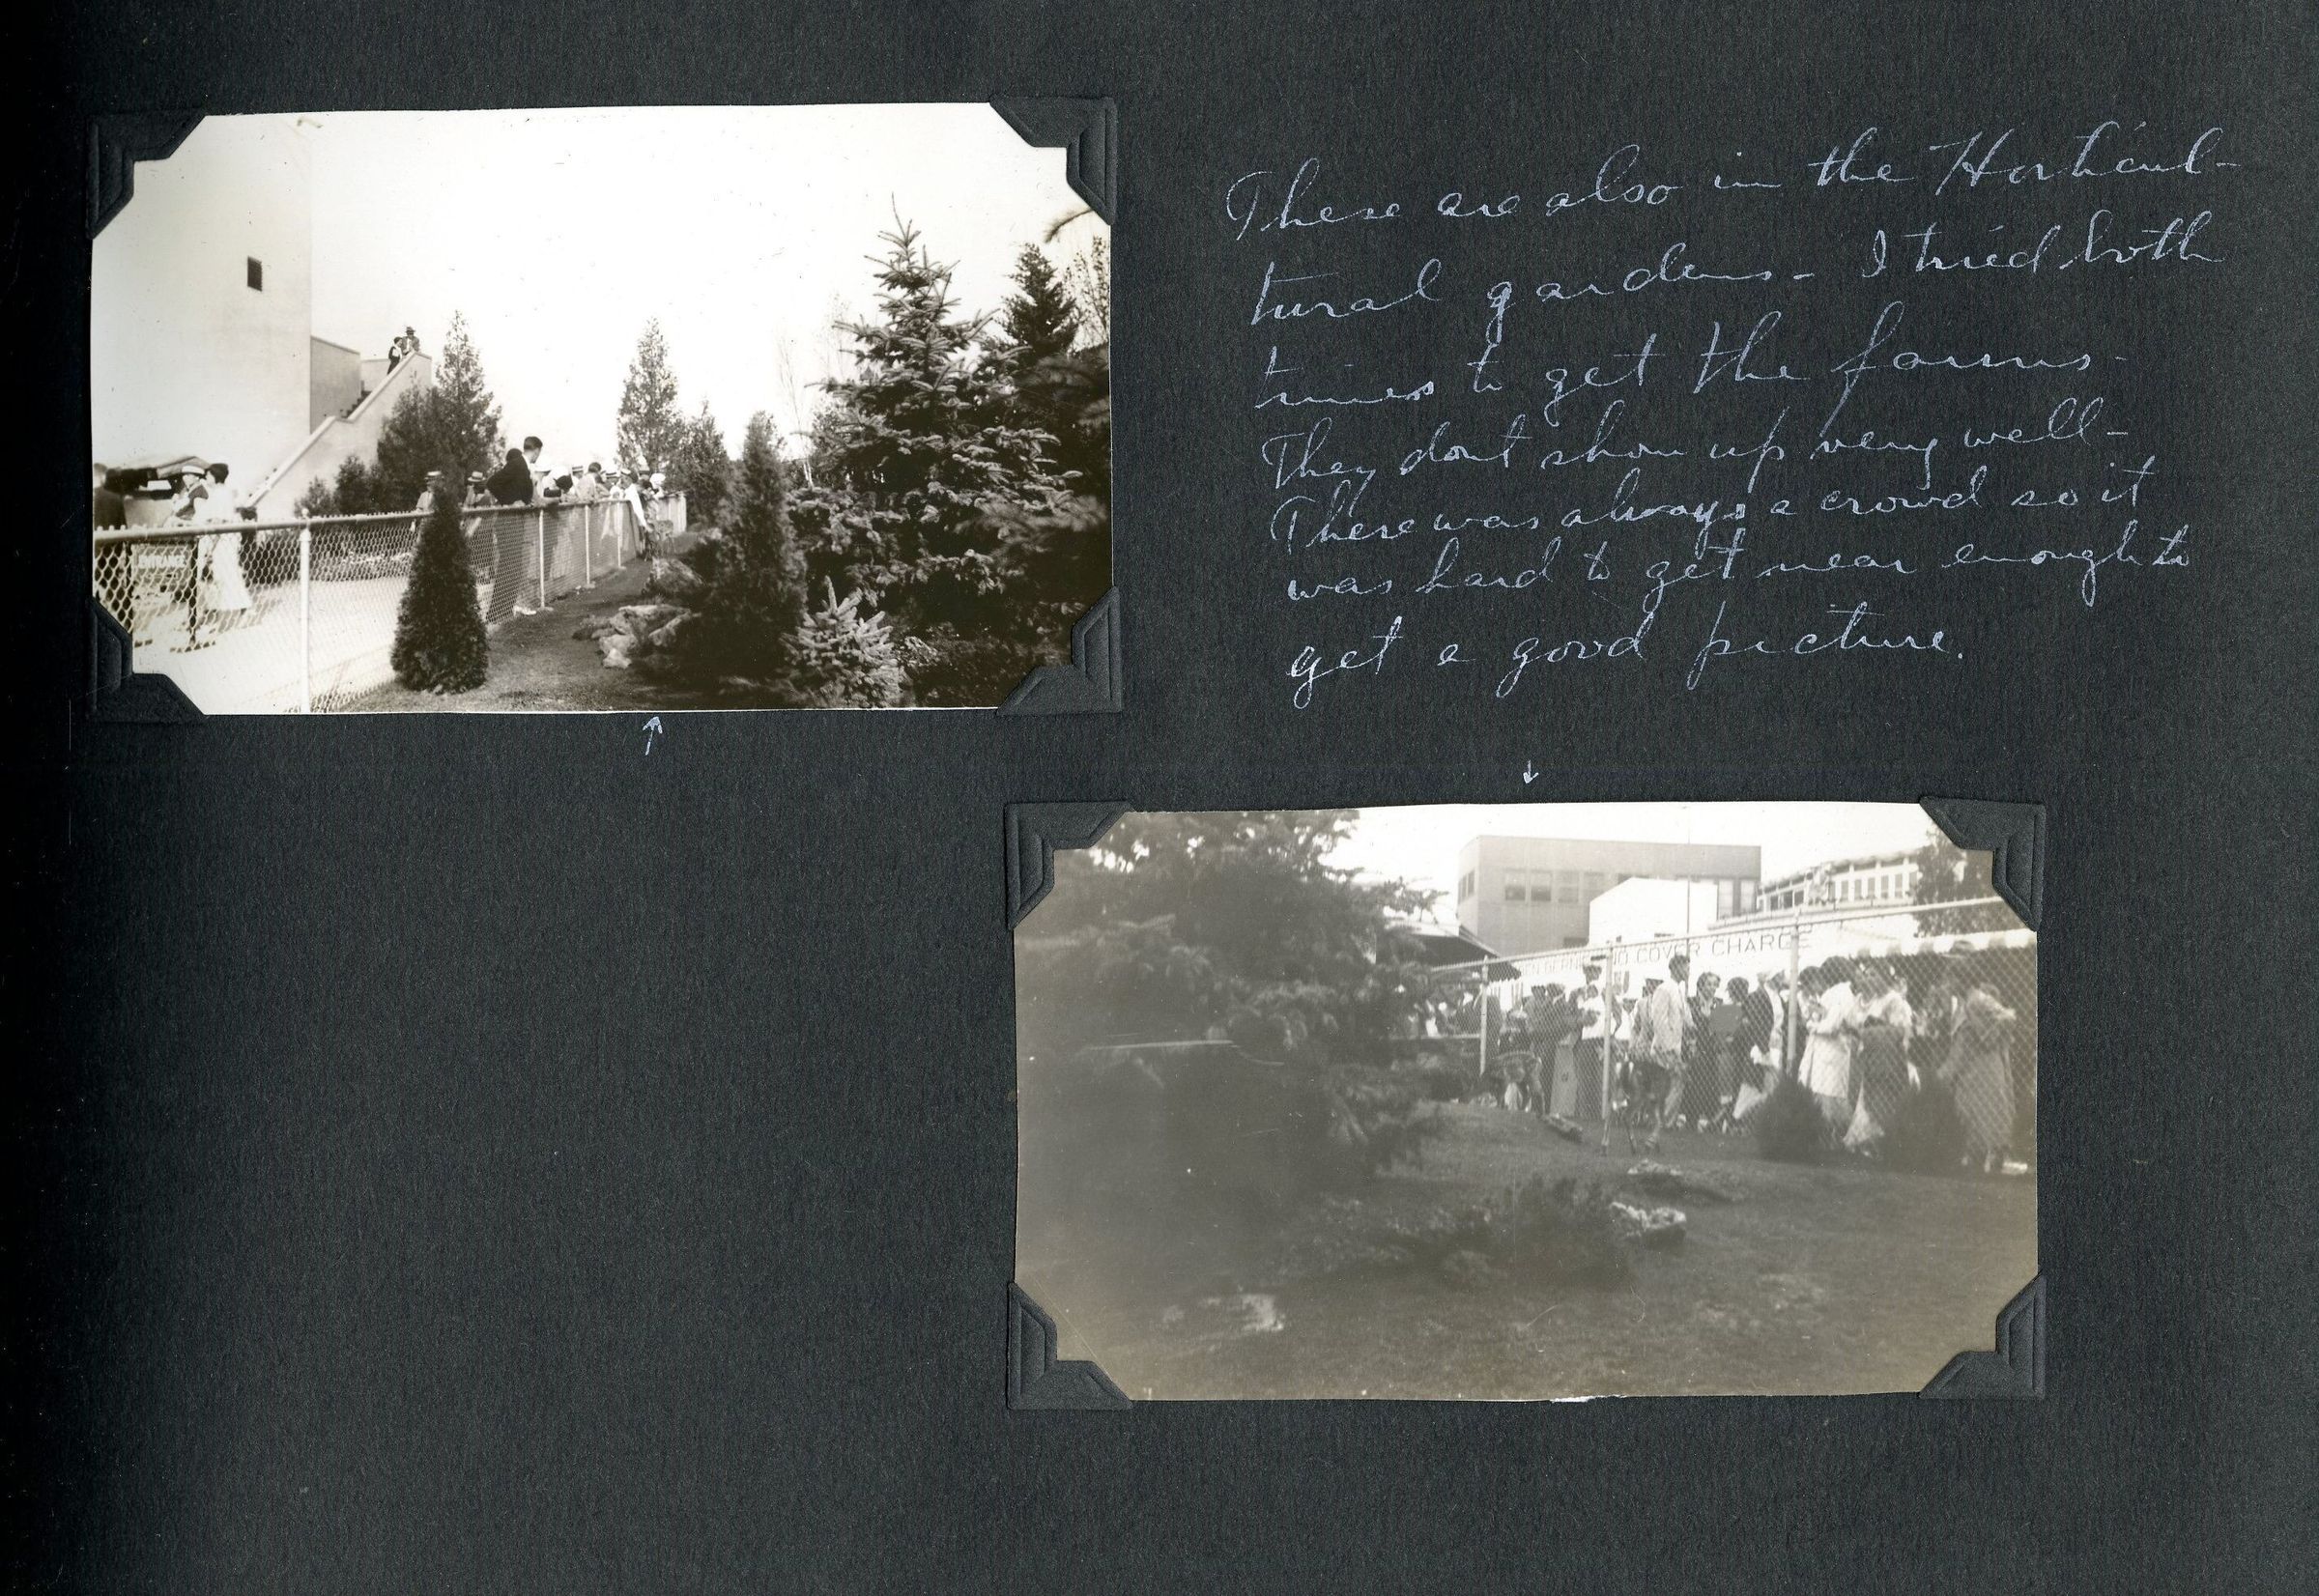 ENTRANCE
These are also in the Horticul-
tural gardens - I tried both
times to get the fawns -
They dont show up very well -
There was always a crowd so it
was hard to get near enough to
get a good picture.
NO COVER CHARGE